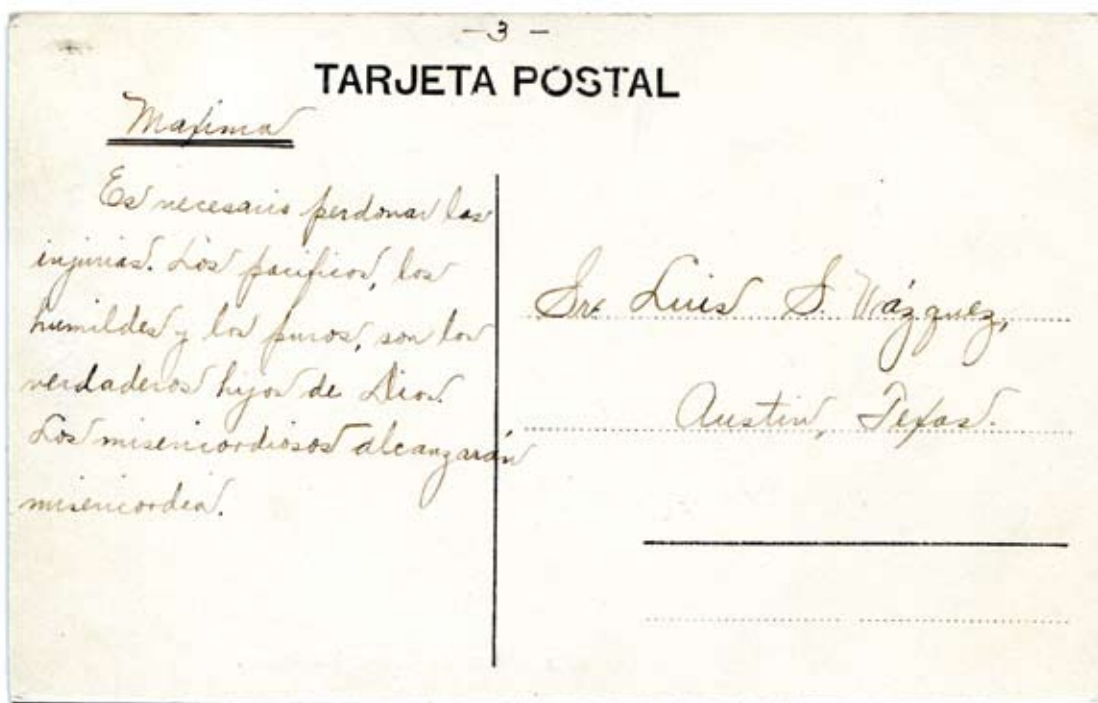 - 3 -
TARJETA POSTAL
Maxima
Es necesario perdonar las
injurias. Los pacificos, los
humildes y los puros, son los
verdaderos hijos de Dios.
Los misericordiosos alcanzarán
misericordia.
Sr. Luis S. Vázquez,
Austin, Texas.